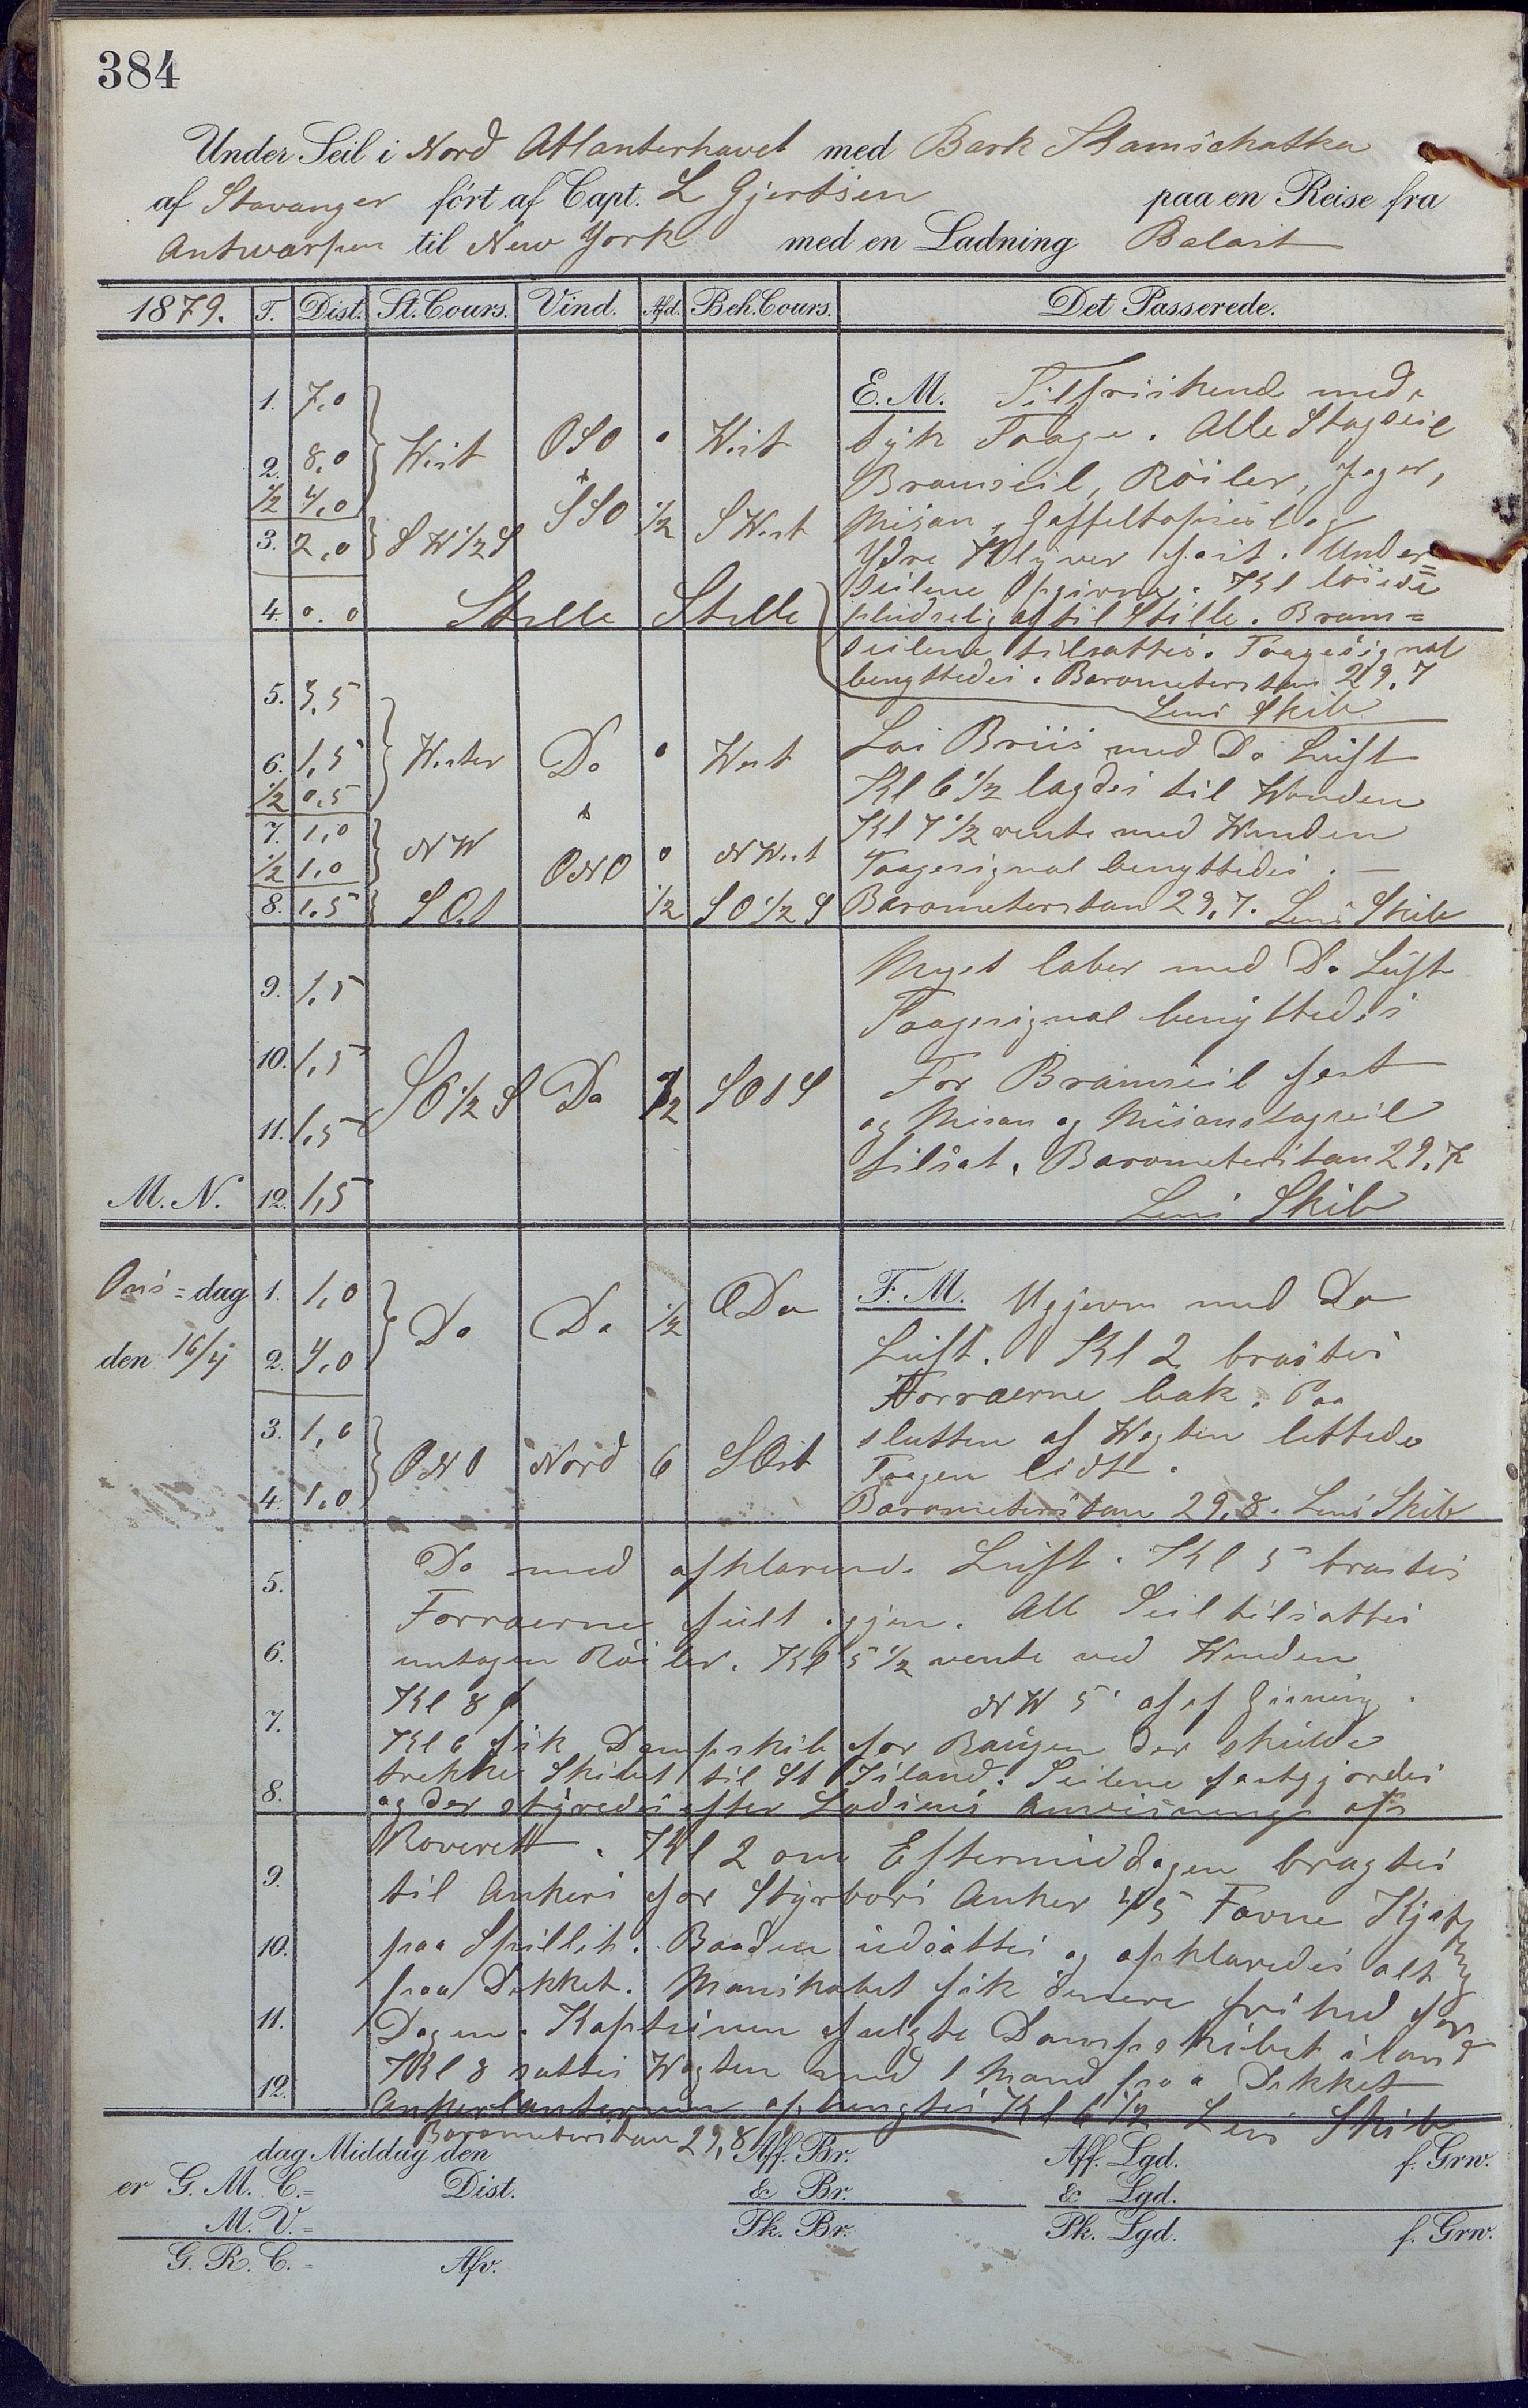 384
Under Seil i Nord Atlanterhavet med Bark Kamschatka
af Stavanger ført af Capt. L Gjertsen paa en Reise fra
Antwarpen til New York med en Ladning Balast
1879. T. Dist. St. Cours. Vind. Afd. Beh. Cours. Det Passerede.
E. M. Tilfriskend med
1. 7,0
tyk Taage. Alle Stagseil
2. 8,0 West OSO 0 West
Bramseil, Röiler, Jager,
½ 4,0 &
Misan, Gaffeltopseil og
3. 2,0 S W ½ S SSO ½ S West
Ydre Klyver fast. Under=
seilene opgivne. Kl löiede
4. 0.0 Stille Stille pludselig af til Stille. Bram=
seilene tilsattes. Taagesignal
benyttedes. Barometerstan 29,7
5. 3,5
Lens Skib
Lai Briis med Do Luft
6. 1,5 Wester Do 0 West
½ 0,5 Kl 6 ½ lagdes til Winden
7. 1,0 & Kl 7 ½ vente med Winden
½ 1,0 NW ONO 0 N West Taagesignal benyttedes. —
8. 1,5 S Ost ½ S O ½ S Barometerstan 29,7. Lens Skib
Myet laber med Do Luft
9. 1,5
Taagesignal benyttedes
10. 1,5 SO ½ S Do ½ S O 1 S For Bramseil fast
11. 1,5 og Misan og Misanstagseil
tilsat. Barometerstan 29,7
M. N. 12. 1,5 Lens Skib
Ons=dag 1. 1,0 Do Do ½ Do F. M. Ugjevn med Do
den 16/4 2. 4,0 Luft. Kl 2 brastes
Forraerne bak. Paa
3. 1,0 slutten af Wagten lettede
ONO Nord 6 S Ost Taagen lidt.
4. 1,0 Barometerstan 29,8. Lens Skib
5. Do med afklarend. Luft. Kl 5 brastes
Forraerne fult igjen. All Seil tilsattes
6. untagen Röiler. Kl 5 ½ vente ved Winden
Kl 8 NW 5' af
7. Kl 6 fik Dampskib for Baugen der skulde
trekke Skibet til St Island. Seilene fastgjordes
8. og der styredes efter Lodsens Anvisning
Kl 2 om Eftermiddagen bragtes
9. til Ankers for Styrbors Anker 45 Favne Kjetting
10. paa Spillet. Baaden udsattes og afklaredes alt
paa Dekket. Manskabet fik frihed for
11. Dagen. Kapteinen fulgte Dampskibet iland
Kl 8 sattes Wagten med 1 Mand paa Dekket
12. Ankerlanternen ophengtes Kl 6 ½ Lens Skib
Barometerstan 29,8
dag Middag den Aff. Br. Aff. Lgd. f. Grw.
er G. M. C.= Dist. & Br. & Lgd.
M. V.= Pk. Br. Pk. Lgd. f. Grw.
G. R. C.= Afv.